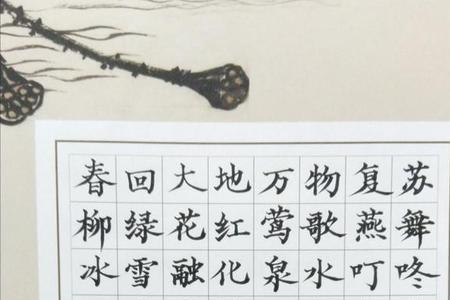 春回大地万物复苏
柳绿花红莺歌燕舞
冰雪融化泉水叮咚